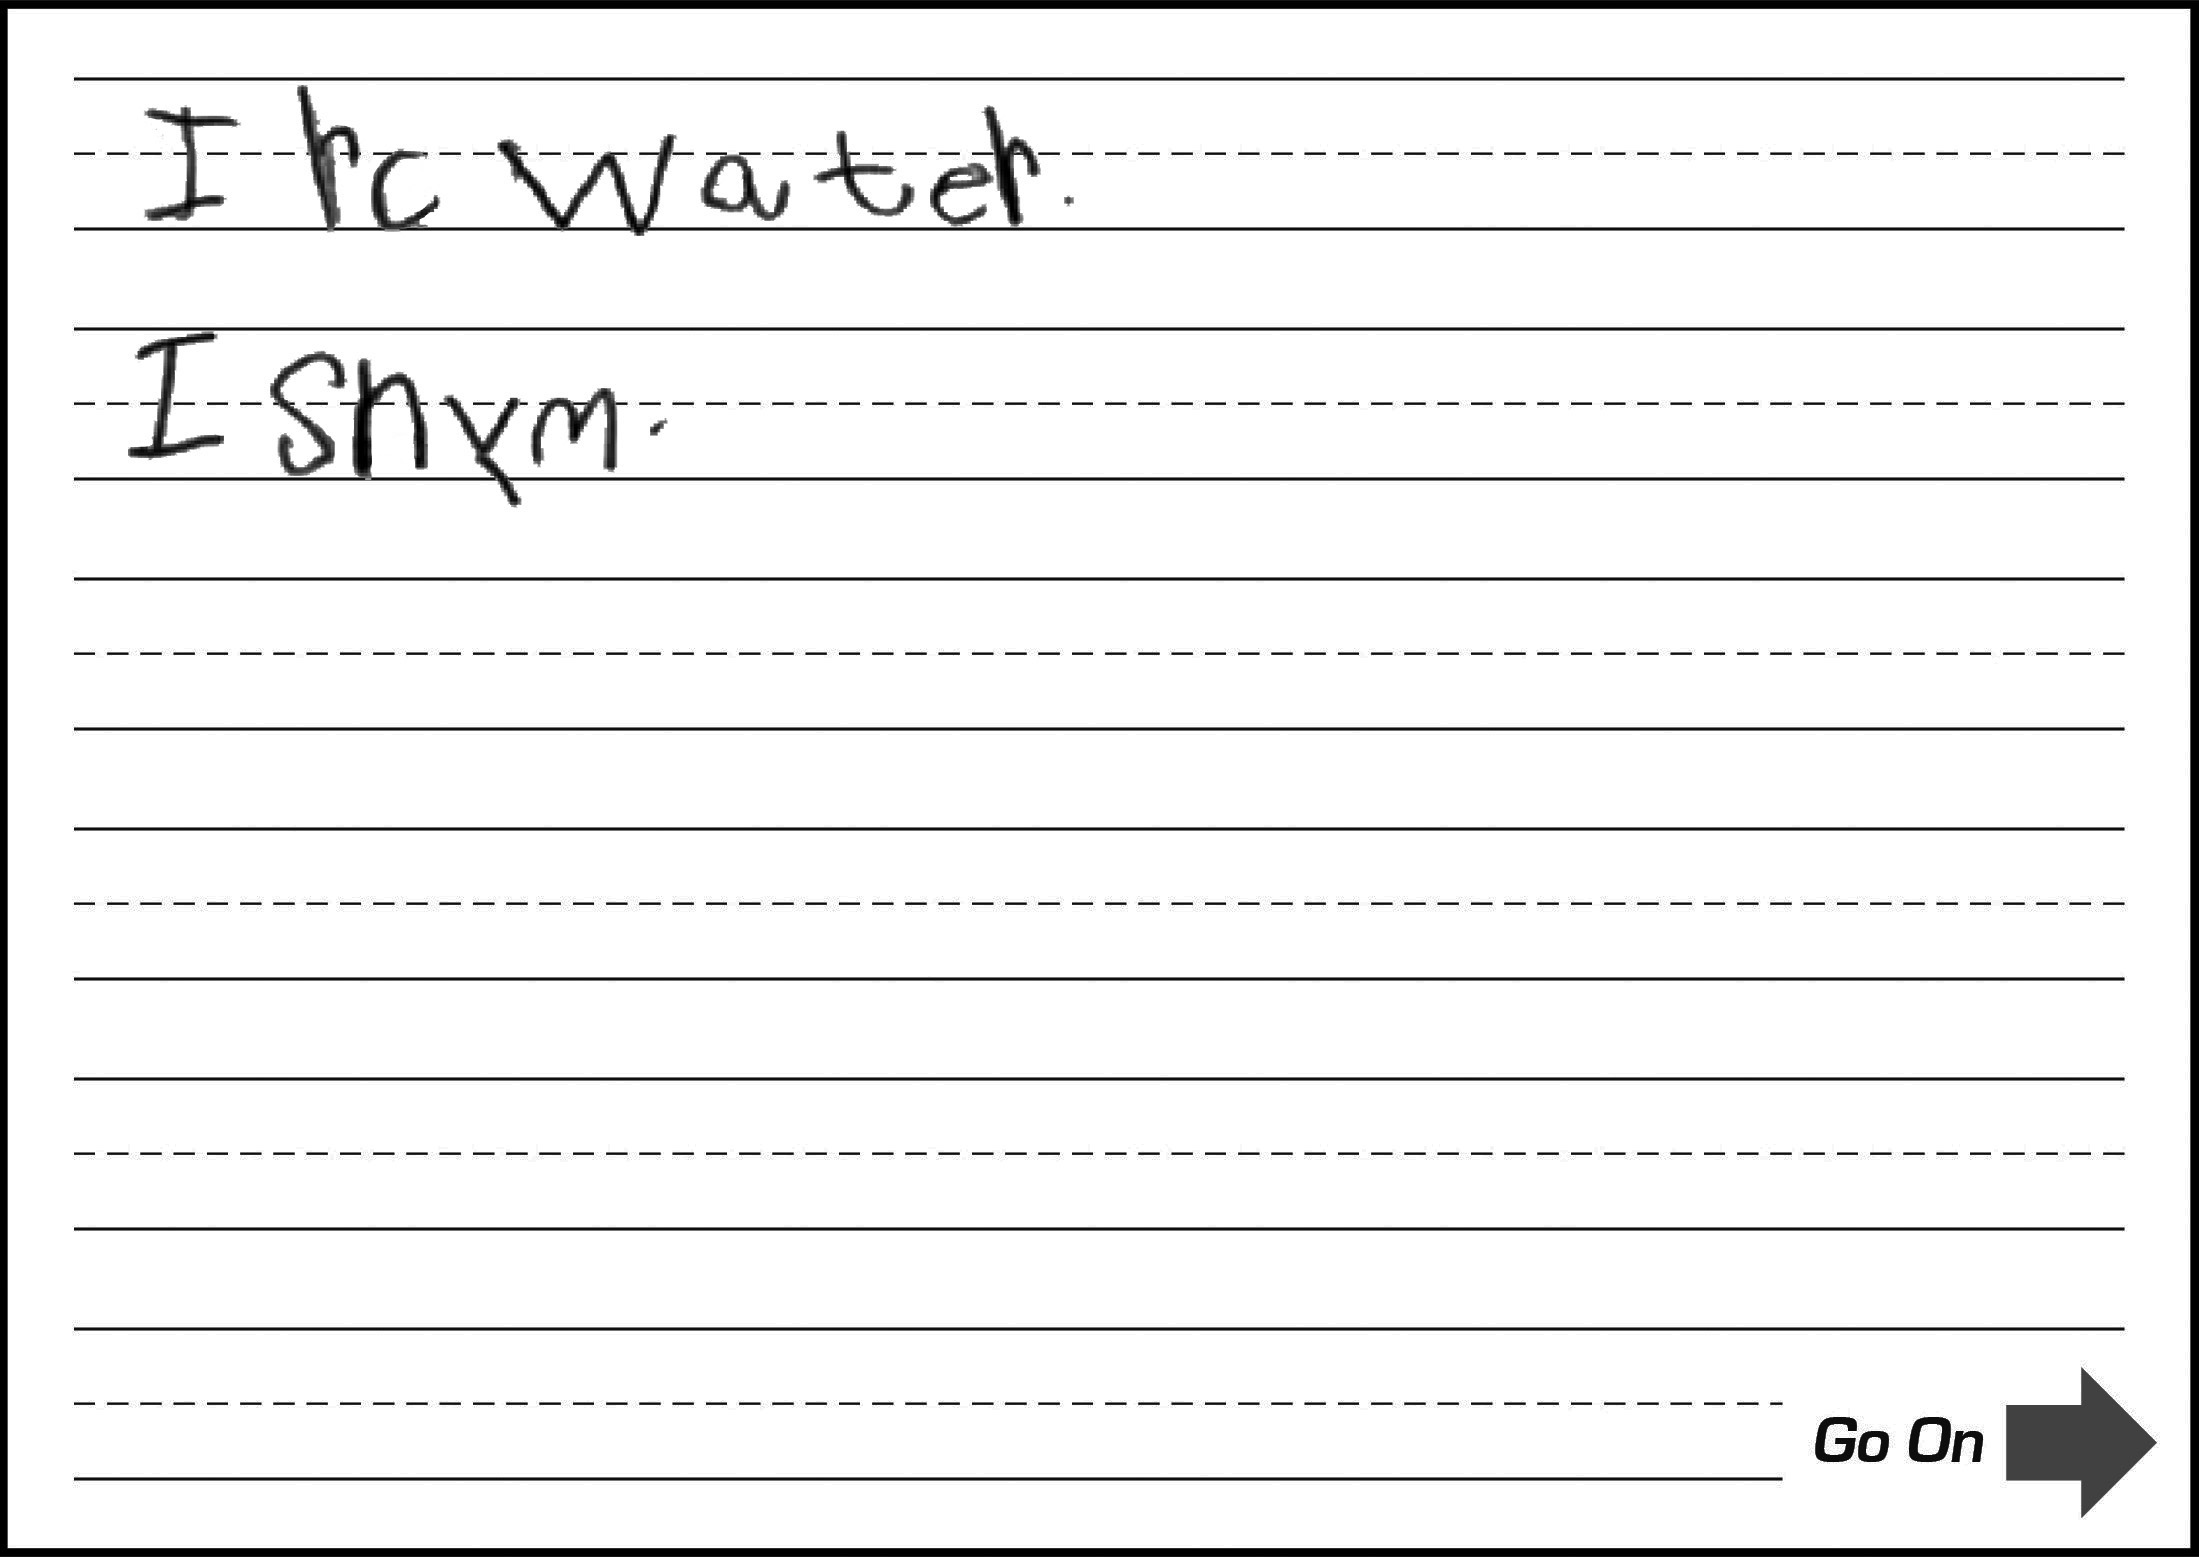 I rc water.
I snym.
Go On